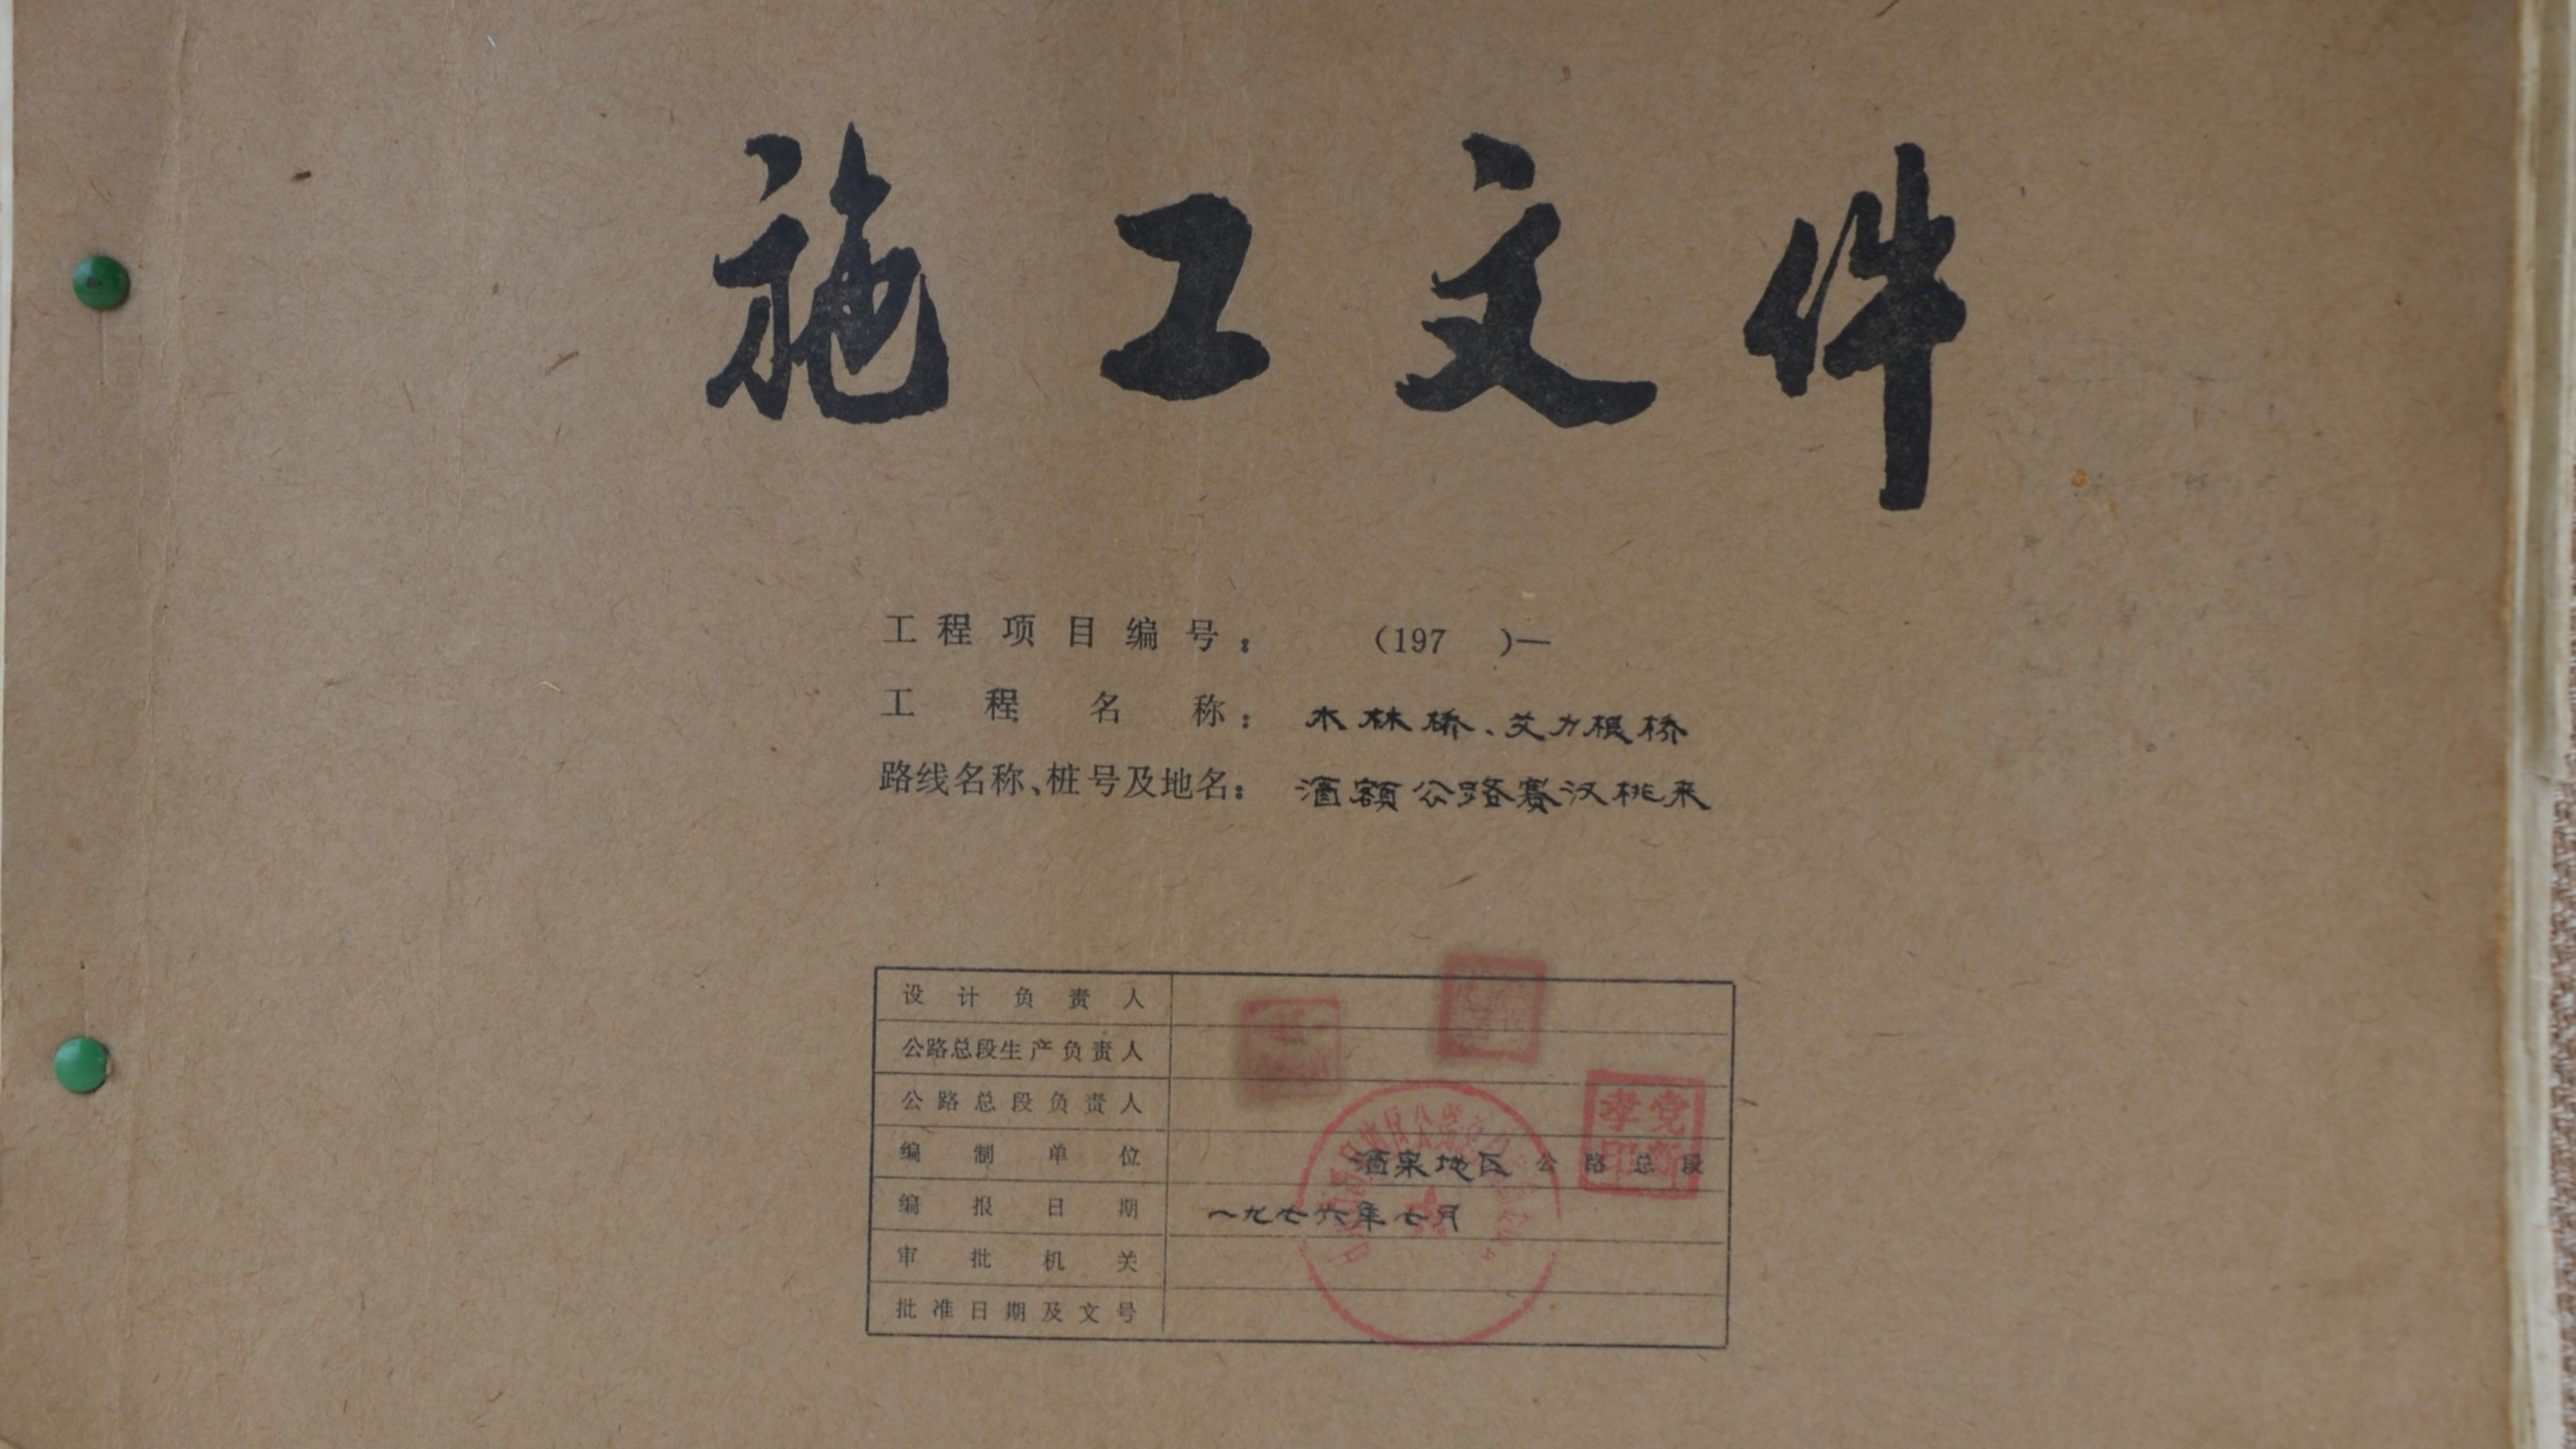 施工文件
工程项目编号： （197 ）—
工程名称： 木林桥、艾力根桥
路线名称、桩号及地名： 酒额公路赛汉桃来
设计负责人
公路总段生产负责人
公路总段负责人
编制单位 酒泉地区公路总段
编报日期 一九七六年七月
审批机关
批准日期及文号